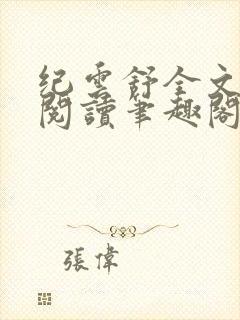 紀雲舒全文
閱讀筆趣閣
張偉